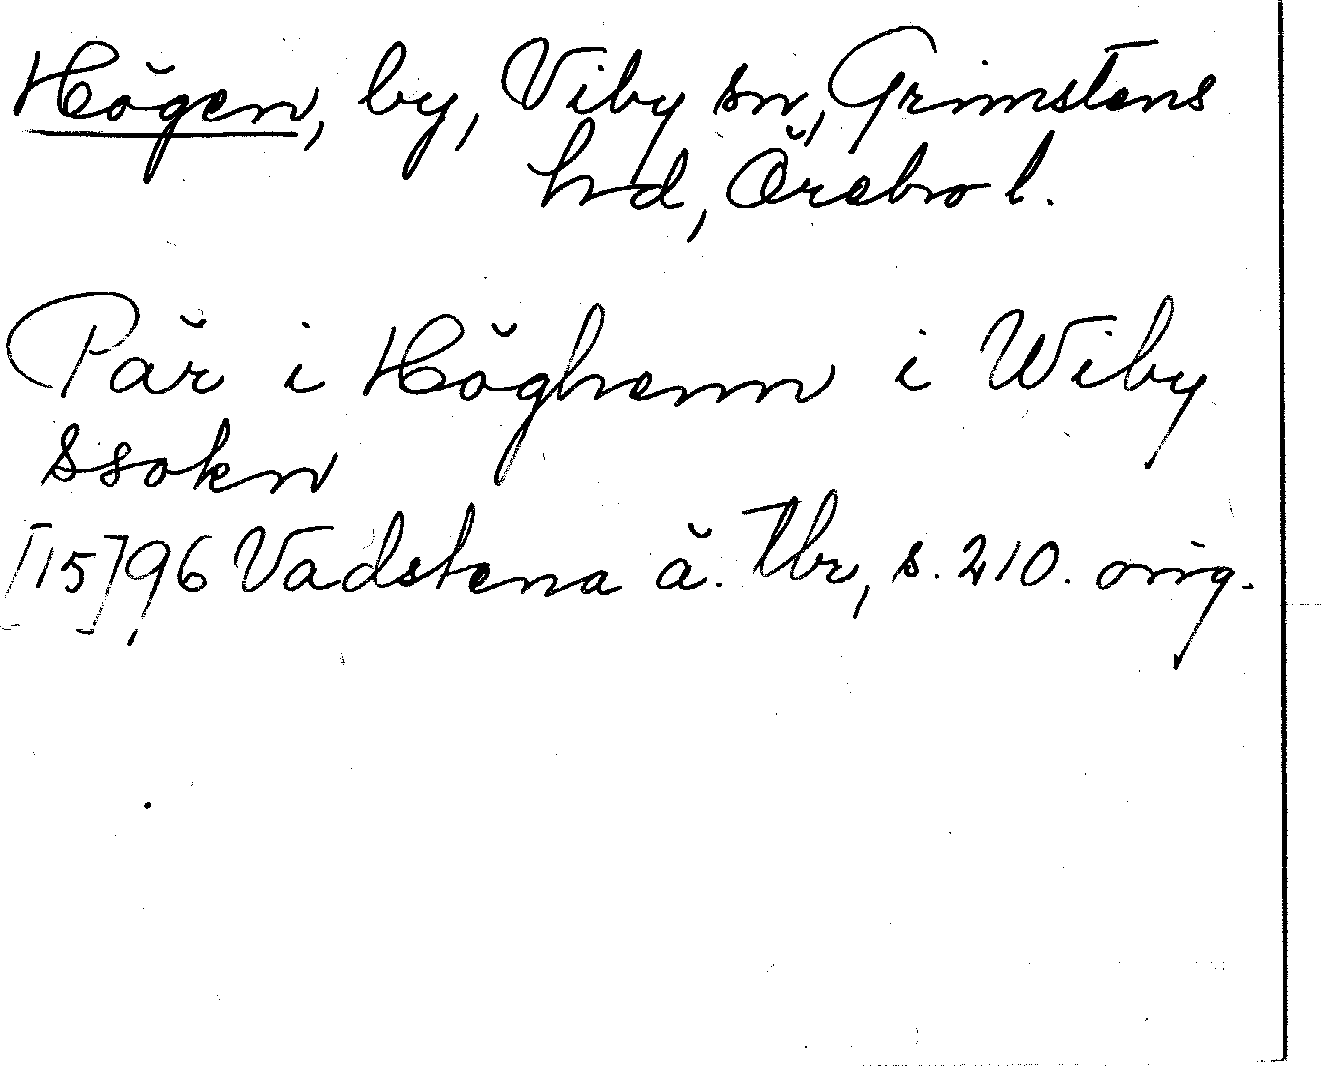 Högen, by, Viby sn, Grimstens
hd, Örebro l.
Pär i Höghenn i Wiby
ssokn
[15]96 Vadstena ä. Tbr, s. 210. orig.